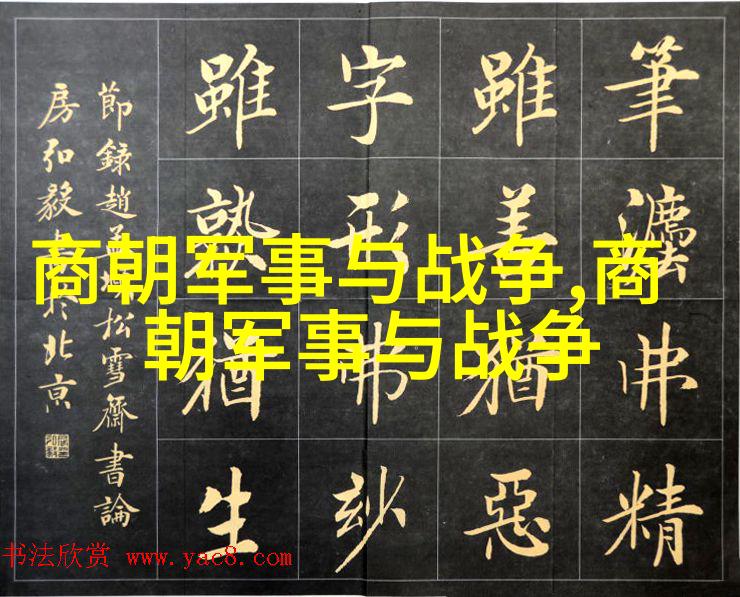 筆灋弗精
雖善猶惡
字形弗玅
雖熟猶生
節錄趙孟頫松雪齋書論
房弘毅書於北京
商朝军事与战争,商
朝军事与战争
书法欣赏 www.yac8.com